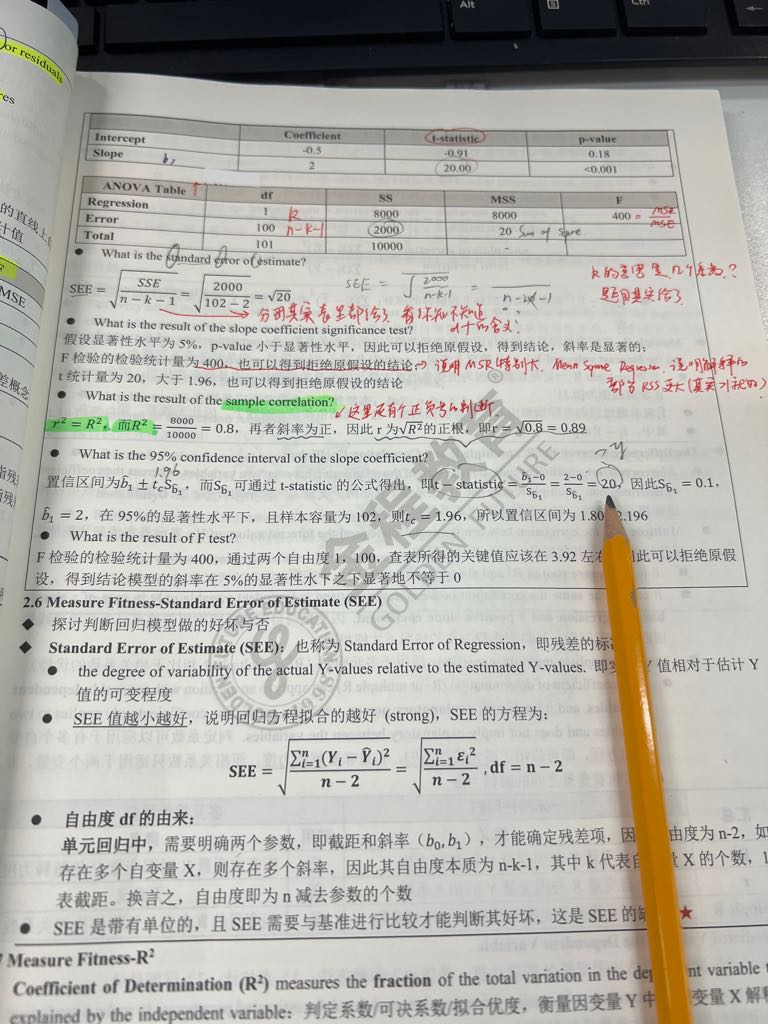 Alt
or residuals
res
的直线上
计值
F
MSE
差概念
Coefficient t-statistic p-value
Intercept -0.5 -0.91 0.18
Slope b₁ 2 20.00 <0.001
ANOVA Table df SS MSS F
Regression 1 k 8000 8000 400 = MSR/MSE
Error 100 n-k-1 2000 20 Sum of
Total 101 10000 -
● What is the standard error of estimate?
SEE = √(SSE/(n − k − 1)) = √(2000/(102 − 2)) = √20
SEE = √(2000/(n-k-1)) =
k的意思是几个系数?
题目其实给了
分母其实表里都给了 看你知不知道
df的含义?
● What is the result of the slope coefficient significance test?
假设显著性水平为 5%，p-value 小于显著性水平，因此可以拒绝原假设，得到结论，斜率是显著的;
F 检验的检验统计量为 400，也可以得到拒绝原假设的结论;
说明 MSR 特别大. Mean Square Regression
t 统计量为 20，大于 1.96，也可以得到拒绝原假设的结论
● What is the result of the sample correlation?
这里还有个正负号的判断
r² = R²，而R² = 8000/10000 = 0.8，再者斜率为正，因此 r 为√R²的正根，即r = √0.8 = 0.89
● What is the 95% confidence interval of the slope coefficient?
1.96
置信区间为b̂₁ ± t_c S_b̂₁，而S_b̂₁可通过 t-statistic 的公式得出，即t − statistic = (b̂₁−0)/S_b̂₁ = (2−0)/S_b̂₁ = 20，因此S_b̂₁ = 0.1，
b̂₁ = 2，在 95%的显著性水平下，且样本容量为 102，则t_c = 1.96，所以置信区间为 1.80 2.196
● What is the result of F test?
F 检验的检验统计量为 400，通过两个自由度 1，100，查表所得的关键值应该在 3.92 左 此可以拒绝原假
设，得到结论模型的斜率在 5%的显著性水下之下显著地不等于 0
金程教育
GOLDEN FUTURE
®
2.6 Measure Fitness-Standard Error of Estimate (SEE)
◆ 探讨判断回归模型做的好坏与否
◆ Standard Error of Estimate (SEE)：也称为 Standard Error of Regression，即残差的标
● the degree of variability of the actual Y-values relative to the estimated Y-values. 即 值相对于估计 Y
值的可变程度
● SEE 值越小越好，说明回归方程拟合的越好 (strong)，SEE 的方程为:
SEE = √(∑ⁿᵢ₌₁(Yᵢ − Ŷᵢ)²/(n − 2)) = √(∑ⁿᵢ₌₁ εᵢ²/(n − 2)) , df = n − 2
● 自由度 df 的由来：
单元回归中，需要明确两个参数，即截距和斜率（b₀, b₁），才能确定残差项，因 由度为 n-2，如
存在多个自变量 X，则存在多个斜率，因此其自由度本质为 n-k-1，其中 k 代表自 量 X 的个数，1
表截距。换言之，自由度即为 n 减去参数的个数
● SEE 是带有单位的，且 SEE 需要与基准进行比较才能判断其好坏，这是 SEE 的 ★
Measure Fitness-R²
Coefficient of Determination (R²) measures the fraction of the total variation in the variable
explained by the independent variable：判定系数/可决系数/拟合优度，衡量因变量 Y 中 变量 X 解释